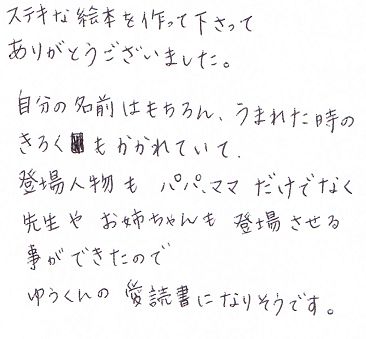 ステキな絵本を作って下さって
ありがとうございました。
自分の名前はもちろん、うまれた時の
きろくもかかれていて、
登場人物も パパ、ママ だけでなく
先生や お姉ちゃんも 登場させる
事ができたので
ゆうくんの 愛読書になりそうです。